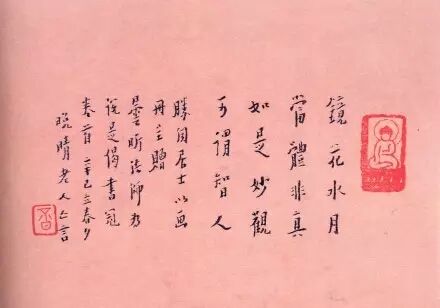 鏡花水月
當體非真
如是妙觀
可謂智人
勝閏居士以畫
冊贈
曇昕法師為
說是偈書冠
卷首辛巳立春夕
晚晴老人亡言